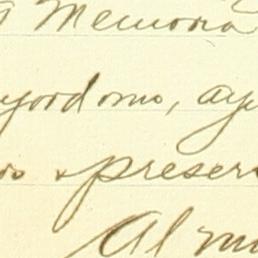 Memoria
yordomo, ay
os & preser
Al m